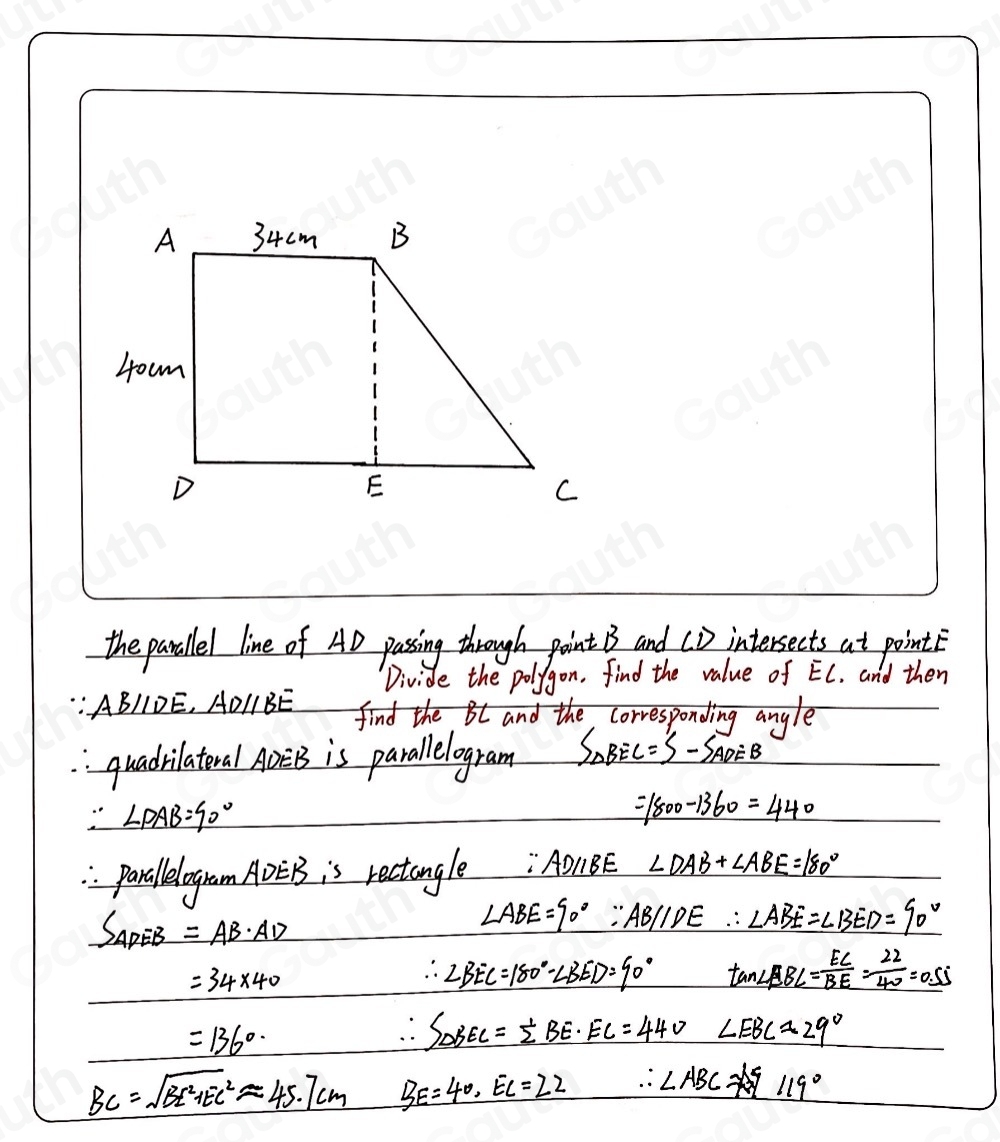 A 34cm B
40cm
D E C
the parallel line of AD passing through point B and CD intersects at point E
Divide the polygon. find the value of EC. and then
∵ AB//DE, AD//BE
find the BC and the corresponding angle
∴ quadrilateral ADEB is parallelogram S△BEC = S - SADEB
∵ ∠DAB=90° =1800-1360 = 440
∴ parallelogram ADEB is rectangle ∵ AD//BE ∠DAB+∠ABE=180°
SADEB = AB·AD ∠ABE=90° ∵AB//DE ∴ ∠ABE=∠BED=90°
=34×40 ∴ ∠BEC=180°-∠BED=90° tan∠EBC=EC/BE=22/40=0.55
=1360. ∴ S△BEC = ½ BE·EC = 440 ∠EBC≈29°
BC = √BE²+EC² ≈ 45.7cm BE=40, EC=22 ∴ ∠ABC≈ 119°
Gauth